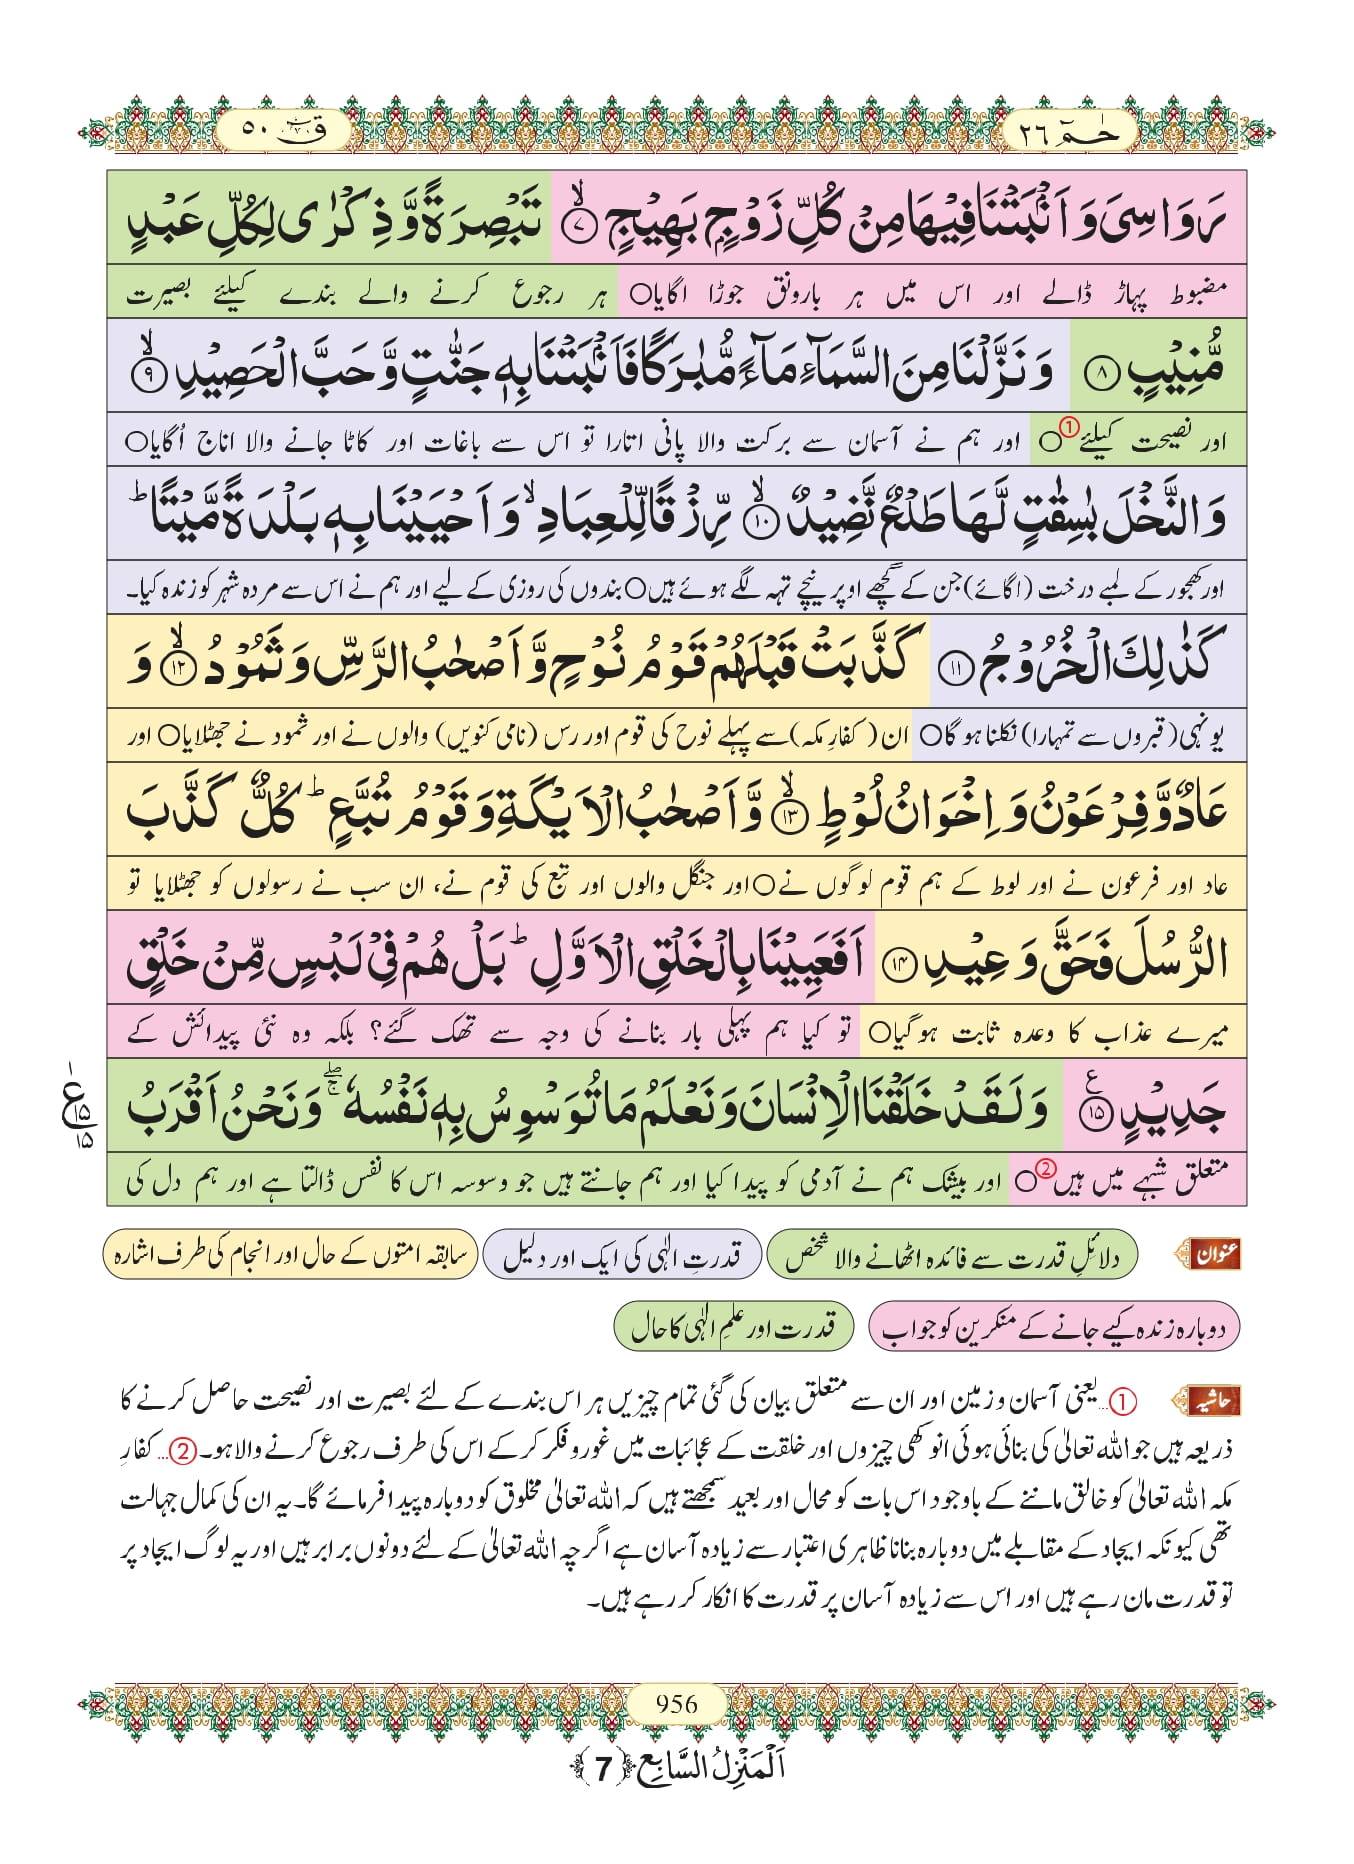 حٰمٓ ٢٦
قٓ ٥٠
رَوَاسِیَ وَ اَنْۢبَتْنَا فِیْهَا مِنْ كُلِّ زَوْجٍۭ بَهِیْجٍۙ۝٧ تَبْصِرَةً وَّ ذِكْرٰى لِكُلِّ عَبْدٍ
مضبوط پہاڑ ڈالے اور اس میں ہر بارونق جوڑا اگایا○ ہر رجوع کرنے والے بندے کیلئے بصیرت
مُّنِیْبٍ۝٨ وَ نَزَّلْنَا مِنَ السَّمَآءِ مَآءً مُّبٰرَكًا فَاَنْۢبَتْنَا بِهٖ جَنّٰتٍ وَّ حَبَّ الْحَصِیْدِۙ۝٩
اور نصیحت کیلئے○① اور ہم نے آسمان سے برکت والا پانی اتارا تو اس سے باغات اور کاٹا جانے والا اناج اُگایا○
وَ النَّخْلَ بٰسِقٰتٍ لَّهَا طَلْعٌ نَّضِیْدٌۙ۝١٠ رِّزْقًا لِّلْعِبَادِۙ وَ اَحْیَیْنَا بِهٖ بَلْدَةً مَّیْتًاؕ
اور کھجور کے لمبے درخت (اگائے) جن کے گچھے اوپر نیچے تہہ لگے ہوئے ہیں○ بندوں کی روزی کے لیے اور ہم نے اس سے مردہ شہر کو زندہ کیا۔
كَذٰلِكَ الْخُرُوْجُ۝١١ كَذَّبَتْ قَبْلَهُمْ قَوْمُ نُوْحٍ وَّ اَصْحٰبُ الرَّسِّ وَ ثَمُوْدُۙ۝١٢ وَ
یونہی (قبروں سے تمہارا) نکلنا ہوگا○ ان (کفارِ مکہ) سے پہلے نوح کی قوم اور رس (نامی کنویں) والوں نے اور ثمود نے جھٹلایا○ اور
عَادٌ وَّ فِرْعَوْنُ وَ اِخْوَانُ لُوْطٍۙ۝١٣ وَّ اَصْحٰبُ الْاَیْكَةِ وَ قَوْمُ تُبَّعٍؕ كُلٌّ كَذَّبَ
عاد اور فرعون نے اور لوط کے ہم قوم لوگوں نے○ اور جنگل والوں اور تبع کی قوم نے، ان سب نے رسولوں کو جھٹلایا تو
الرُّسُلَ فَحَقَّ وَعِیْدِ۝١٤ اَفَعَیِیْنَا بِالْخَلْقِ الْاَوَّلِؕ بَلْ هُمْ فِیْ لَبْسٍ مِّنْ خَلْقٍ
میرے عذاب کا وعدہ ثابت ہوگیا○ تو کیا ہم پہلی بار بنانے کی وجہ سے تھک گئے؟ بلکہ وہ نئی پیدائش کے
جَدِیْدٍ۠۝١٥ وَ لَقَدْ خَلَقْنَا الْاِنْسَانَ وَ نَعْلَمُ مَا تُوَسْوِسُ بِهٖ نَفْسُهٗۚۖ وَ نَحْنُ اَقْرَبُ
متعلق شبہے میں ہیں○② اور بیشک ہم نے آدمی کو پیدا کیا اور ہم جانتے ہیں جو وسوسہ اس کا نفس ڈالتا ہے اور ہم دل کی
ع ١٥ ١٥
عنوان دلائلِ قدرت سے فائدہ اٹھانے والا شخص قدرتِ الٰہی کی ایک اور دلیل سابقہ امتوں کے حال اور انجام کی طرف اشارہ
دوبارہ زندہ کیے جانے کے منکرین کو جواب قدرت اور علمِ الٰہی کا حال
حاشیہ ①... یعنی آسمان و زمین اور ان سے متعلق بیان کی گئی تمام چیزیں ہر اس بندے کے لئے بصیرت اور نصیحت حاصل کرنے کا
ذریعہ ہیں جو اللہ تعالیٰ کی بنائی ہوئی انوکھی چیزوں اور خلقت کے عجائبات میں غور و فکر کرکے اس کی طرف رجوع کرنے والا ہو۔ ②... کفارِ
مکہ اللہ تعالیٰ کو خالق ماننے کے باوجود اس بات کو محال اور بعید سمجھتے ہیں کہ اللہ تعالیٰ مخلوق کو دوبارہ پیدا فرمائے گا۔ یہ ان کی کمال جہالت
تھی کیونکہ ایجاد کے مقابلے میں دوبارہ بنانا ظاہری اعتبار سے زیادہ آسان ہے اگرچہ اللہ تعالیٰ کے لئے دونوں برابر ہیں اور یہ لوگ ایجاد پر
تو قدرت مان رہے ہیں اور اس سے زیادہ آسان پر قدرت کا انکار کر رہے ہیں۔
956
اَلْمَنْزِلُ السَّابِع ﴿7﴾